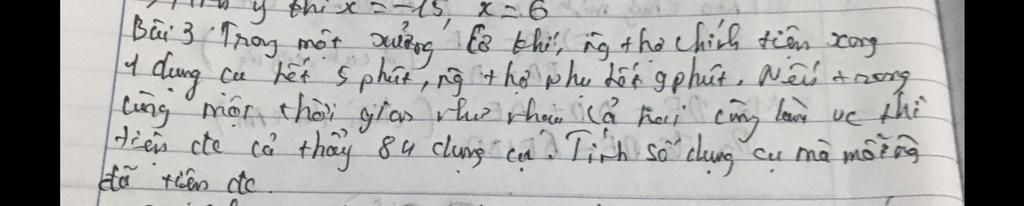 y thì x = -15, x = 6
Bài 3: Trong một xưởng cơ khí, ng thợ chính tiện xong
1 dụng cụ hết 5 phút, ng thợ phụ hết 9 phút. Nếu trong
cùng một thời gian như nhau cả hai cùng làm vc thì
tiện đc cả thảy 84 dụng cụ. Tính số dụng cụ mà mỗi ng
đã tiện đc.